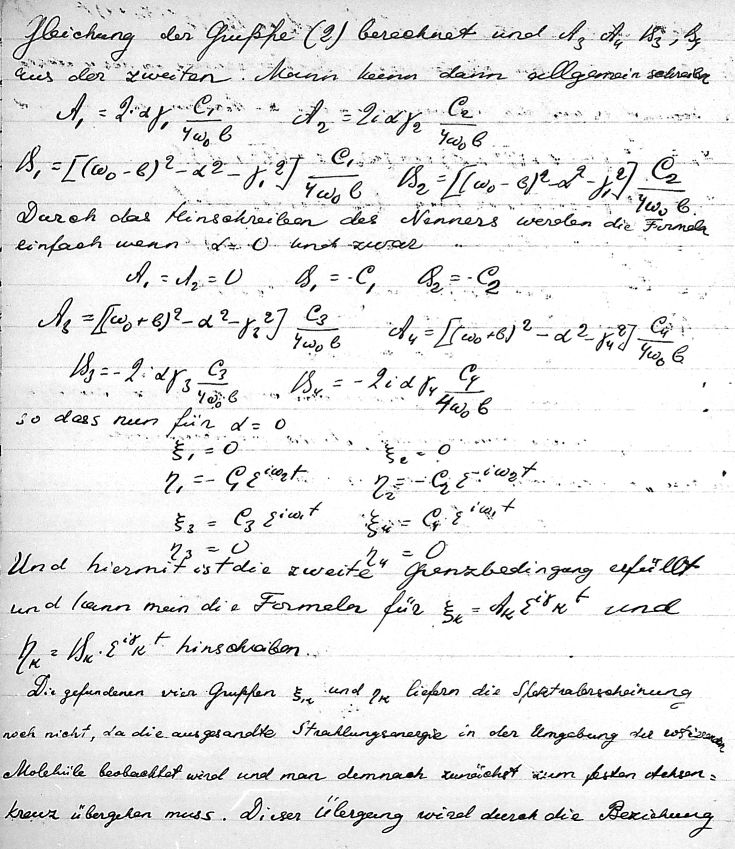 Gleichung der Gruppe (2) berechnet und A₃ A₄ B₃, B₄
aus der zweiten. Mann kann dann allgemein schreiben
A₁ = 2iαγ₁ C₁/4ω₀b   A₂ = 2iαγ₂ C₂/4ω₀b
B₁ = [(ω₀ - b)² - α² - γ₁²] C₁/4ω₀b   B₂ = [(ω₀ - b)² - α² - γ₁²] C₂/4ω₀b.
Durch das Hinschreiben des Nenners werden die Formeln
einfach wenn α = 0 und zwar
A₁ = A₂ = 0   B₁ = -C₁   B₂ = -C₂
A₃ = [(ω₀ + b)² - α² - γ₃²] C₃/4ω₀b   A₄ = [(ω₀ + b)² - α² - γ₄²] C₄/4ω₀b
B₃ = -2iαγ₃ C₃/4ω₀b   B₄ = -2iαγ₄ C₄/4ω₀b
so dass nun für α = 0
ξ₁ = 0   ξ₂ = 0
η₁ = -C₁ε^{iω₂t}   η₂ = -C₂ε^{-iω₂t}
ξ₃ = C₃ε^{iω₁t}   ξ₄ = C₄ε^{iω₁t}
η₃ = 0   η₄ = 0
Und hiermit ist die zweite Grenzbedingung erfüllt
und kann man die Formeln für ξₖ = Aₖε^{iγₖt} und
ηₖ = Bₖ·ε^{iγₖt} hinschreiben.
Die gefundenen vier Gruppen ξₖ und ηₖ liefern die Spektralerscheinung
noch nicht, da die ausgesandte Strahlungsenergie in der Umgebung der rotierenden
Moleküle beobachtet wird und man demnach zunächst zum festen Achsen=
kreuz übergehen muss. Dieser Übergang wird durch die Beziehung